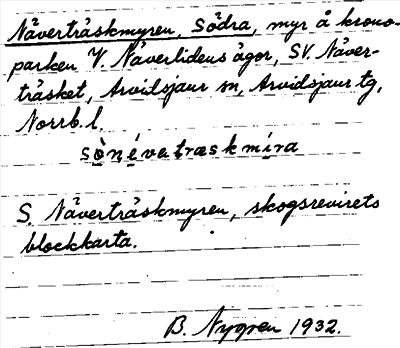 Näverträskmyren, Södra, myr å krono-
parken V. Näverlidens ägor, SV. Näver-
träsket, Arvidsjaur sn, Arvidsjaur tg,
Norrb. l.
sònévatræskmíra
S. Näverträskmyren, skogsrevirets
blockkarta.
B. Nygren 1932.